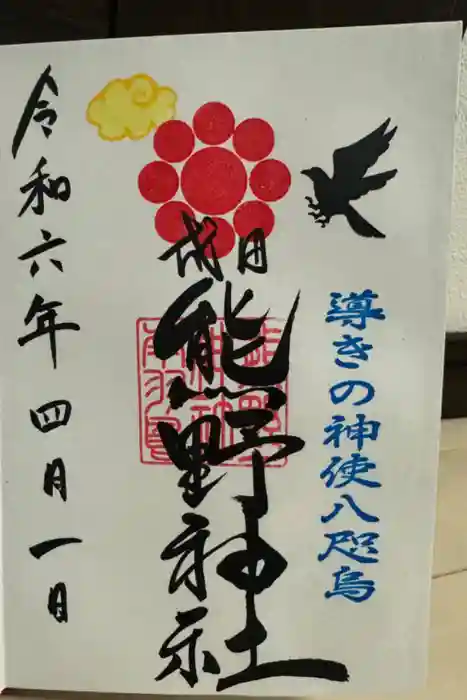 導きの神使八咫烏
成田
熊野神社
令和六年四月一日